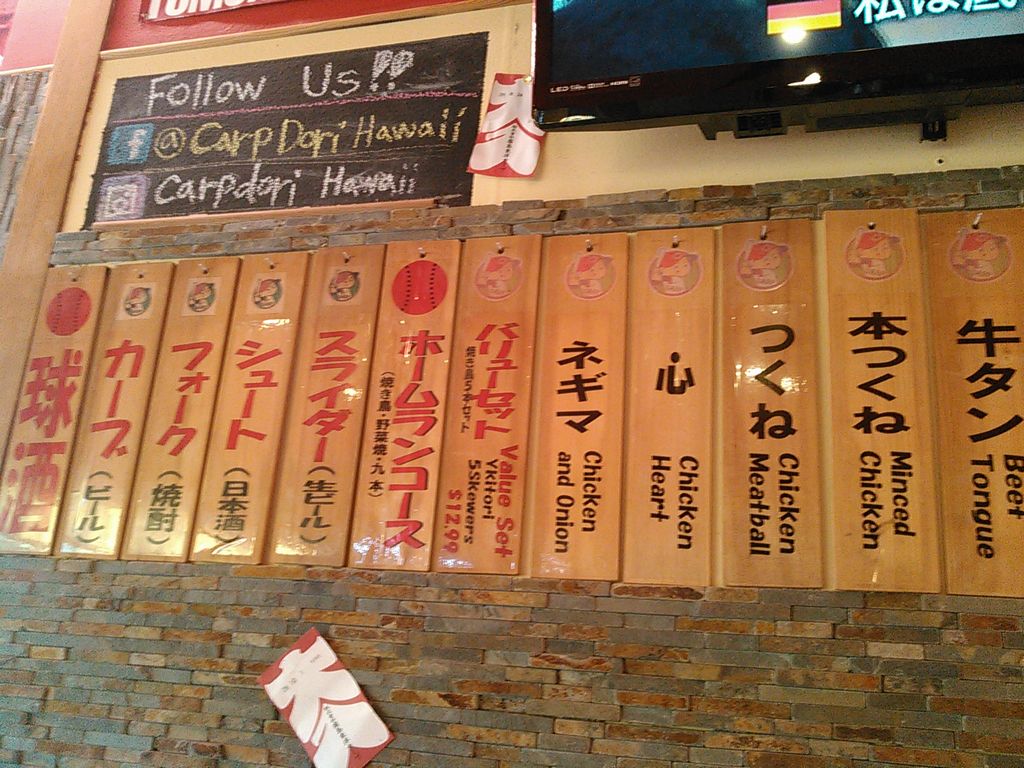 Follow Us!!
@CarpDoriHawaii
Carpdori Hawaii
私は
LED
HDMI
球酒
カーブ
(ビール)
フォーク
(焼酎)
シュート
(日本酒)
スライダー
(生ビール)
ホームランコース
(焼き鳥・野菜焼・九本)
バリューセット
焼き鳥5本セット
Value Set
Ykitori
5Skewers
$12.99
ネギマ
Chicken
and Onion
心
Chicken
Heart
つくね
Chicken
Meatball
本つくね
Minced
Chicken
牛タン
Beef
Tongue